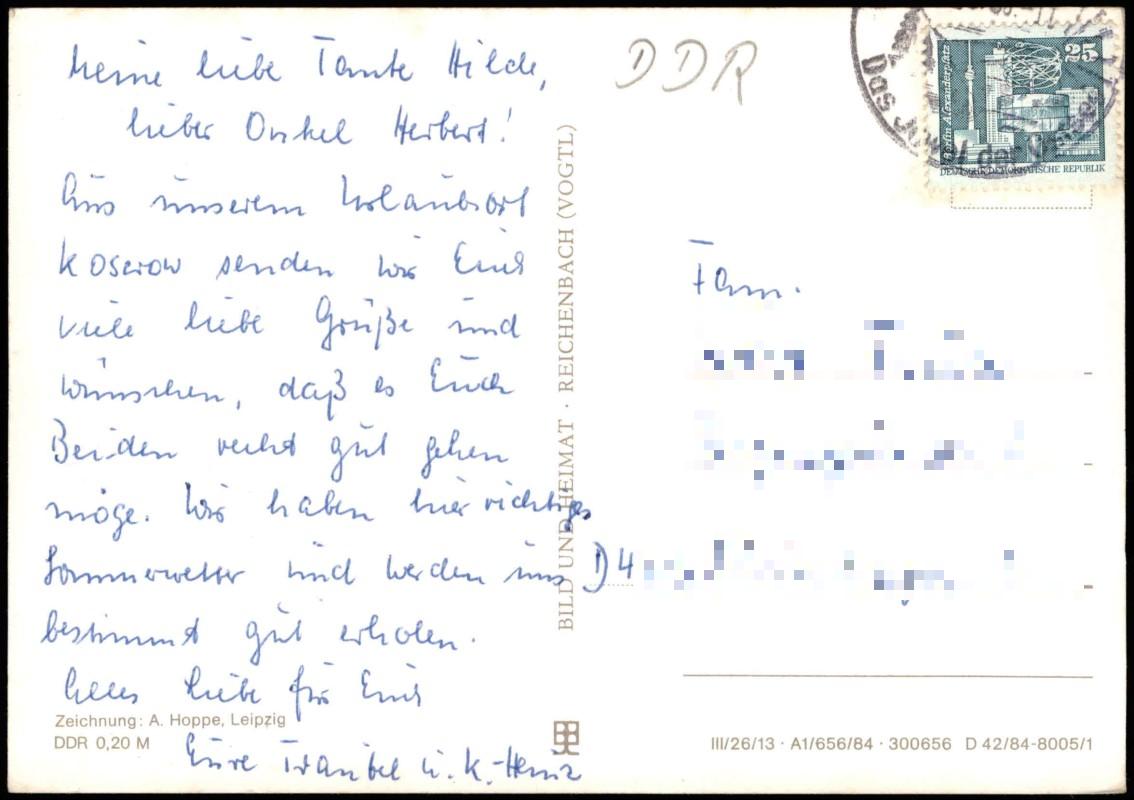 Meine liebe Tante Hilde,
lieber Onkel Herbert!
Aus unserem Urlaubsort
Koserow senden wir Euch
viele liebe Grüße und
wünschen, daß es Euch
Beiden recht gut gehen
möge. Wir haben hier richtiges
Sommerwetter und werden uns
bestimmt gut erholen.
Alles Liebe für Euch
Eure Traubel u. K.-Heinz
Zeichnung: A. Hoppe, Leipzig
DDR 0,20 M
BILD UND HEIMAT · REICHENBACH (VOGTL)
DDR
Das Juwel der
25
Berlin Alexanderplatz
DEUTSCHE DEMOKRATISCHE REPUBLIK
Fam.
D 4
III/26/13 · A1/656/84 · 300656 D 42/84-8005/1